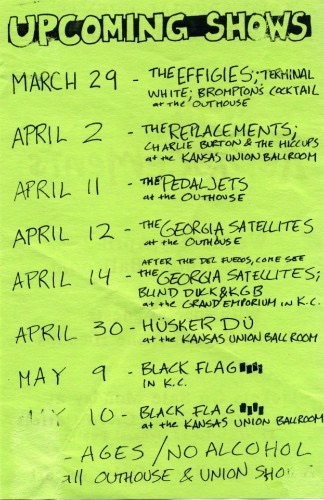 UPCOMING SHOWS
MARCH 29 - THE EFFIGIES; TERMINAL
WHITE; BROMPTON'S COCKTAIL
at the OUTHOUSE
APRIL 2 - THE REPLACEMENTS;
CHARLIE BURTON & THE HICCUPS
at the KANSAS UNION BALLROOM
APRIL 11 - THE PEDALJETS
at the OUTHOUSE
APRIL 12 - THE GEORGIA SATELLITES
at the OUTHOUSE
AFTER THE DEL FUEGOS, COME SEE
APRIL 14 - THE GEORGIA SATELLITES;
BLIND DUCK & KGB
at the GRAND EMPORIUM IN K.C.
APRIL 30 - HÜSKER DÜ
at the KANSAS UNION BALLROOM
MAY 9 - BLACK FLAG
IN K.C.
10 - BLACK FLAG
at the KANSAS UNION BALLROOM
- AGES / NO ALCOHOL
all OUTHOUSE & UNION